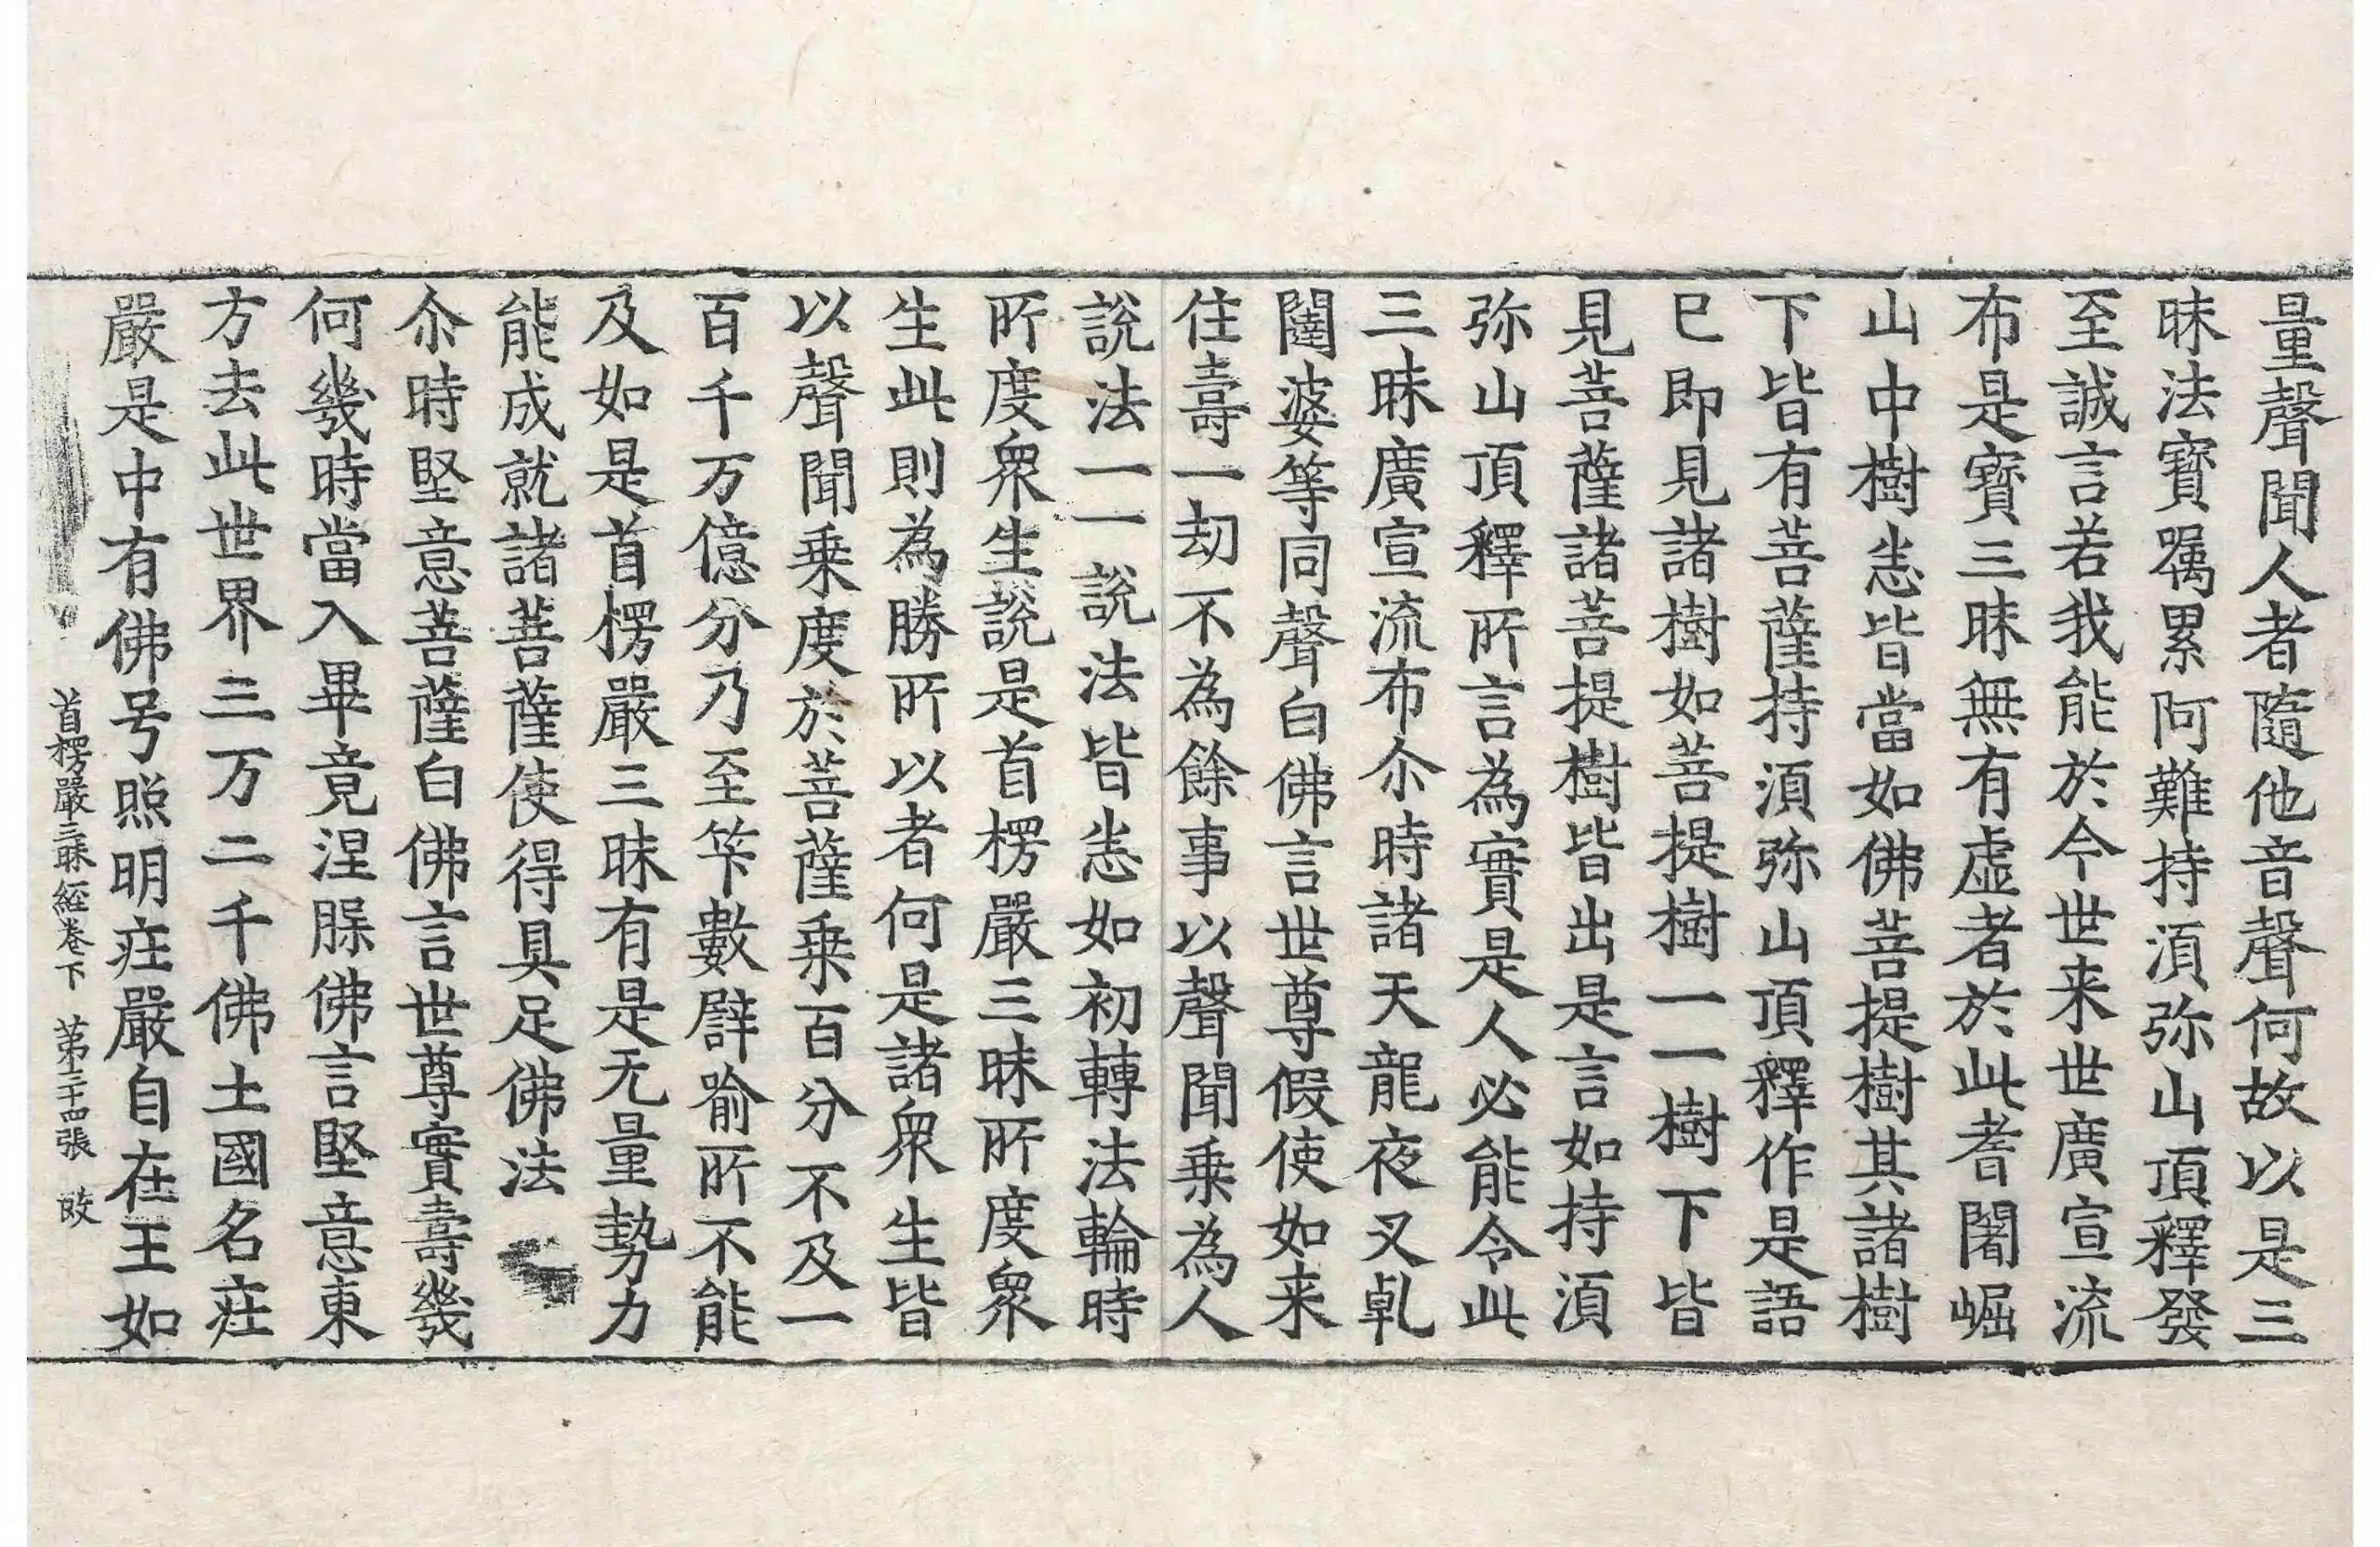 量聲聞人者隨他音聲何故以是三
昧法寶囑累阿難持湏弥山頂釋發
至誠言若我能於今世来世廣宣流
布是寶三昧無有虛者於此耆闍崛
山中樹悉皆當如佛菩提樹其諸樹
下皆有菩薩持湏弥山頂釋作是語
已即見諸樹如菩提樹一一樹下皆
見菩薩諸菩提樹皆出是言如持湏
弥山頂釋所言為實是人必能令此
三昧廣宣流布尒時諸天龍夜叉乹
闥婆等同聲白佛言世尊假使如来
住壽一劫不為餘事以聲聞乗為人
說法一一說法皆悉如初轉法輪時
所度衆生說是首楞嚴三昧所度衆
生此則為勝所以者何是諸衆生皆
以聲聞乗度於菩薩乗百分不及一
百千万億分乃至筭數譬喻所不能
及如是首楞嚴三昧有是无量勢力
能成就諸菩薩使得具足佛法
尒時堅意菩薩白佛言世尊實壽幾
何幾時當入畢竟涅脲佛言堅意東
方去此世界三万二千佛土國名疰
嚴是中有佛号照明疰嚴自在王如
首楞嚴三昧經卷下　苐三十四張　𭣧